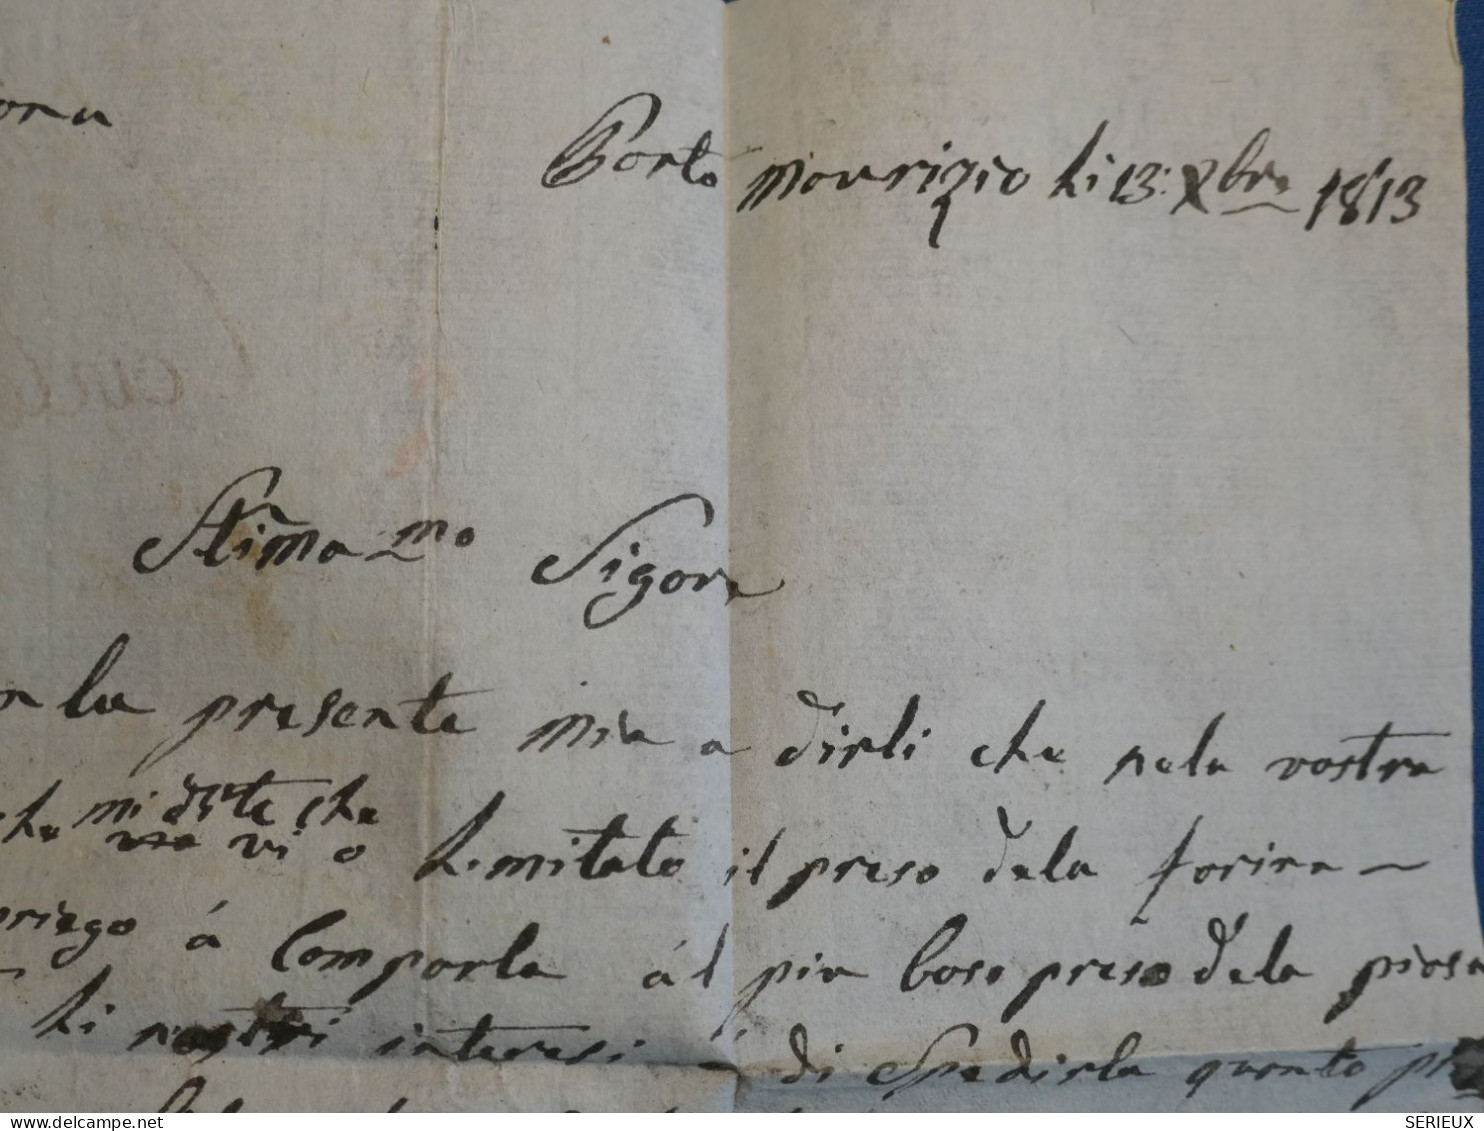 Porto Mourizio li 13: Xbre 1813
Stima.mo Sigora
la presente mia a dirli che nela vostra
che mi dite che
vi o limitato il preso dela forina
priego á Comporla ál piu boso preso dela piosa
li nostri interesi á di Spedirla quanto
SERIEUX